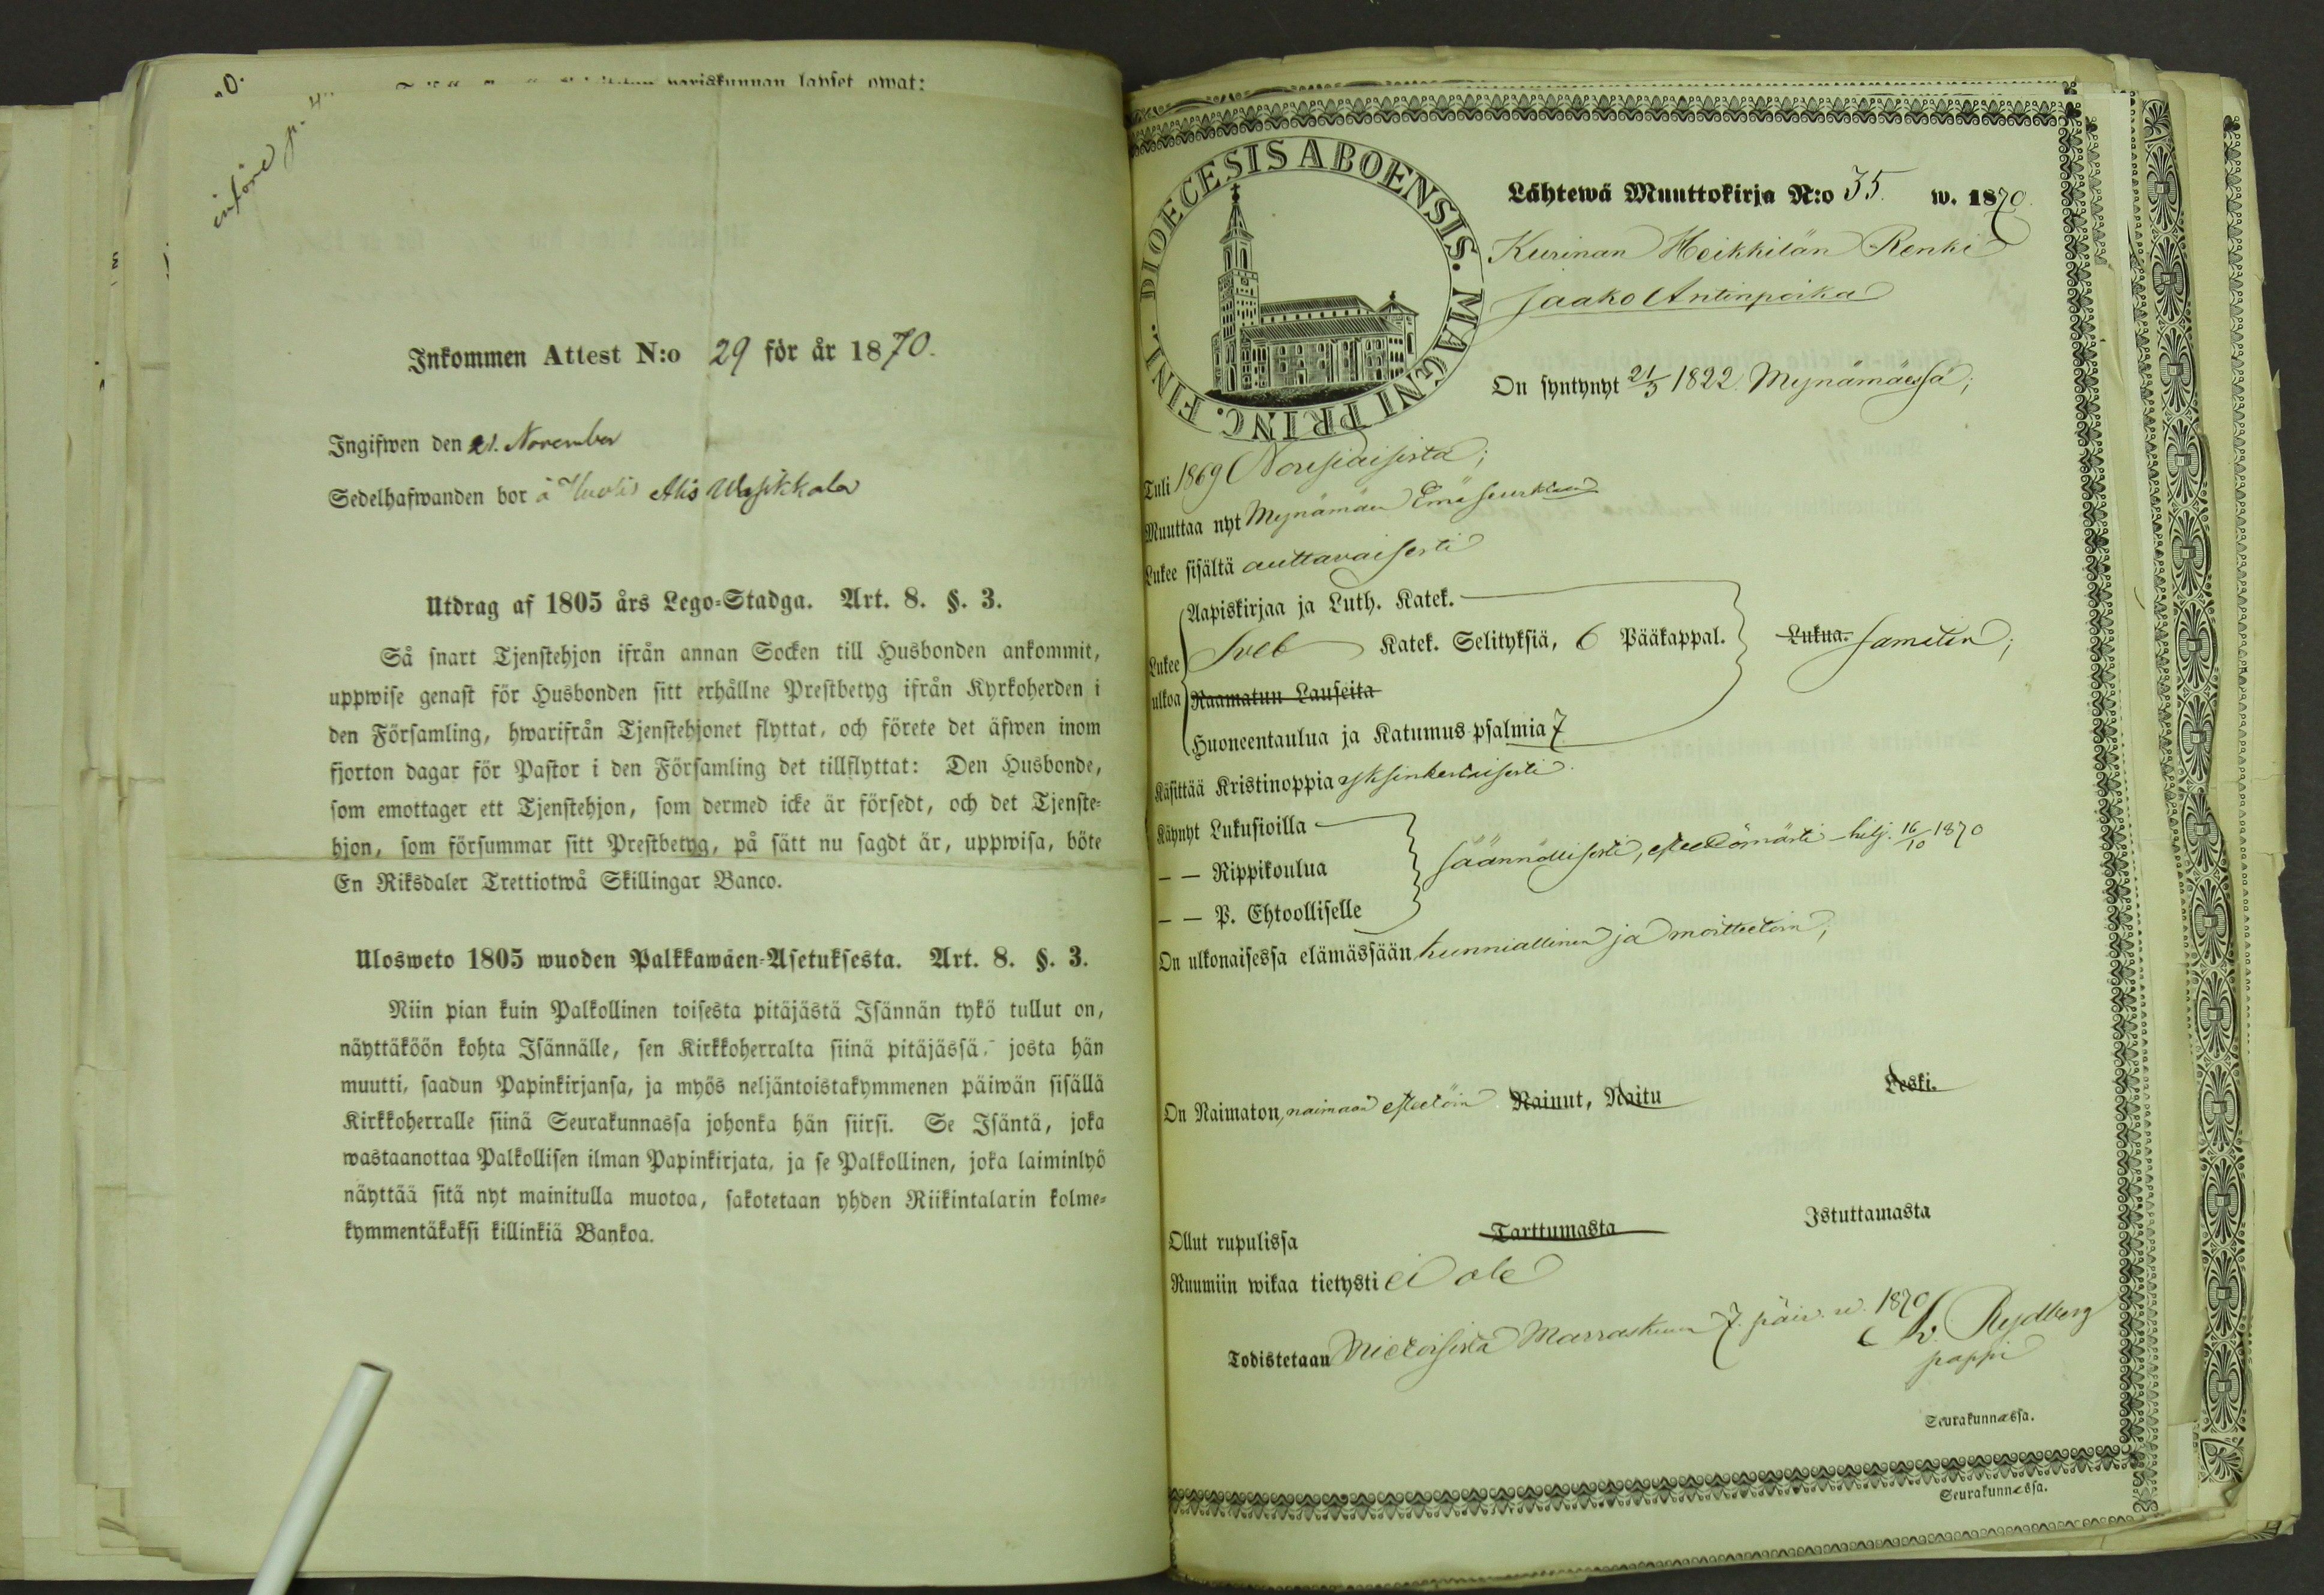 pariskunnan lapset owat:
införd p.
Inkommen Attest N:o 29 för år 1870.
Ingifwen den 21. November
Sedelhafwanden bor å Huolis Alis Wasikkala
Utdrag af 1805 års Lego-Stadga. Art. 8. §. 3.
Så snart Tjenstehjon ifrån annan Socken till Husbonden ankommit,
uppwise genast för Husbonden sitt erhållne Prestbetyg ifrån Kyrkoherden i
den Församling, hwarifrån Tjenstehjonet flyttat, och förete det äfwen inom
fjorton dagar för Pastor i den Församling det tillflyttat: Den Husbonde,
som emottager ett Tjenstehjon, som dermed icke är försedt, och det Tjenste-
hjon, som försummar sitt Prestbetyg, på sätt nu sagdt är, uppwisa, böte
En Riksdaler Trettiotwå Skillingar Banco.
Ulosweto 1805 wuoden Palkkawäen-Asetuksesta. Art. 8. §. 3.
Niin pian kuin Palkollinen toisesta pitäjästä Isännän tykö tullut on,
näyttäköön kohta Isännälle, sen Kirkkoherralta siinä pitäjässä, josta hän
muutti, saadun Papinkirjansa, ja myös neljäntoistakymmenen päiwän sisällä
Kirkkoherralle siinä Seurakunnassa johonka hän siirsi. Se Isäntä, joka
wastaanottaa Palkollisen ilman Papinkirjata, ja se Palkollinen, joka laiminlyö
näyttää sitä nyt mainitulla muotoa, sakotetaan yhden Riikintalarin kolme-
kymmentäkaksi killinkiä Bankoa.
DIOECESIS ABOENSIS. MAGNI PRINC. FINL.
Lähtewä Muuttokirja N:o 35. w. 1870.
Kurinan Heikkilän Renki
Jaako Antinpoika
On syntynyt 21/3 1822 Mynämäessä;
Tuli 1869 Nousiaisista;
Muuttaa nyt Mynämäen Emäseurkaan
Lukee sisältä auttavaisesti
Aapiskirjaa ja Luth. Katek.
Lukee ulkoa Sveb Katek. Selityksiä, 6 Pääkappal. Lukua. sameten;
Raamatun Lauseita
Huoneentaulua ja Katumus-psalmia 7
Käsittää Kristinoppia yksinkertaisesti.
Käynyt Lukusioilla
— — Rippikoulua säännöllisesti, esteetömästi – hilj. 16/10 1870
— — P. Ehtoolliselle
On ulkonaisessa elämässään kunniallinen ja moitteetoin;
On Naimaton, naimaan esteetöin Nainut, Naitu Leski.
Ollut rupulissa Tarttumasta Istuttamasta
Ruumiin wikaa tietysti ei ole
Todistetaan Mietoisista Marraskuun 7. päiv. w. 1870
Rydberg
pappi
Seurakunnassa.
Seurakunnassa.